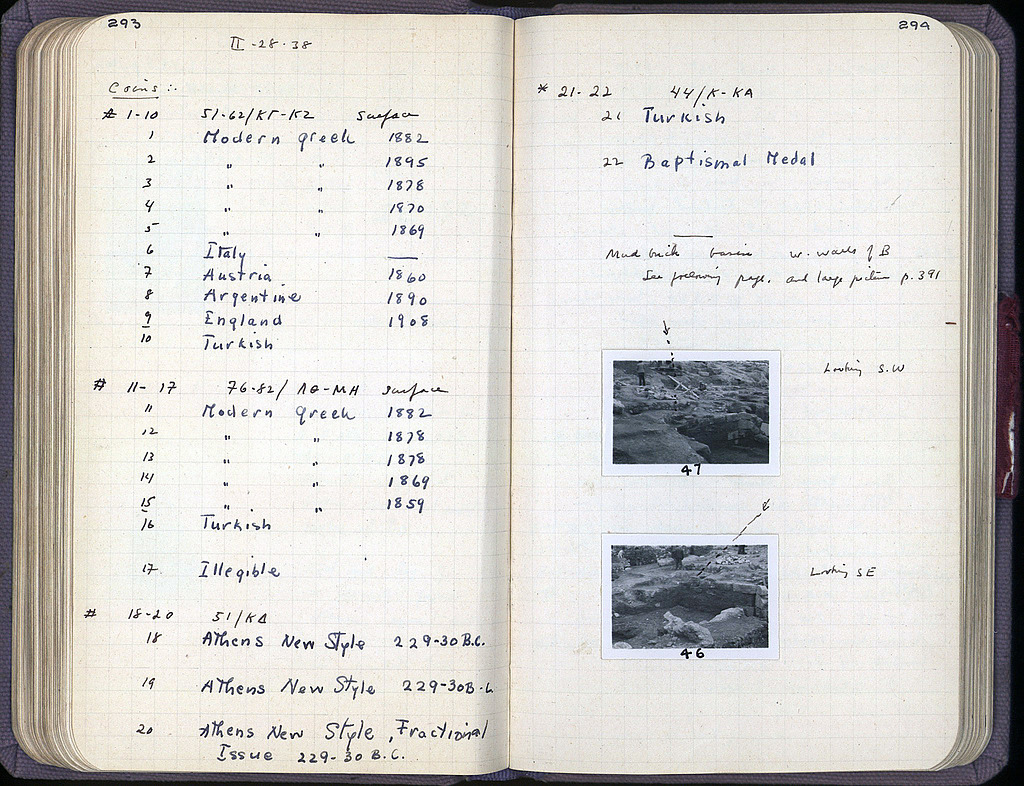 293
II-28-38
Coins :-
# 1-10 51-62/ΚΓ-ΚΖ Surface
1 Modern greek 1882
2 " " 1895
3 " " 1878
4 " " 1870
5 " " 1869
6 Italy —
7 Austria 1860
8 Argentine 1890
9 England 1908
10 Turkish
# 11-17 76-82/ΛΘ-ΜΗ Surface
11 Modern greek 1882
12 " " 1878
13 " " 1878
14 " " 1869
15 " " 1859
16 Turkish
17 Illegible
# 18-20 51/ΚΔ
18 Athens New Style 229-30 B.C.
19 Athens New Style 229-30 B.C.
20 Athens New Style, Fractional
Issue 229-30 B.C.
294
* 21-22 44/Κ-ΚΑ
21 Turkish
22 Baptismal Medal
Mud brick basin w. walls of B
See following page. and large picture p. 391
Looking S.W
47
Looking SE
46